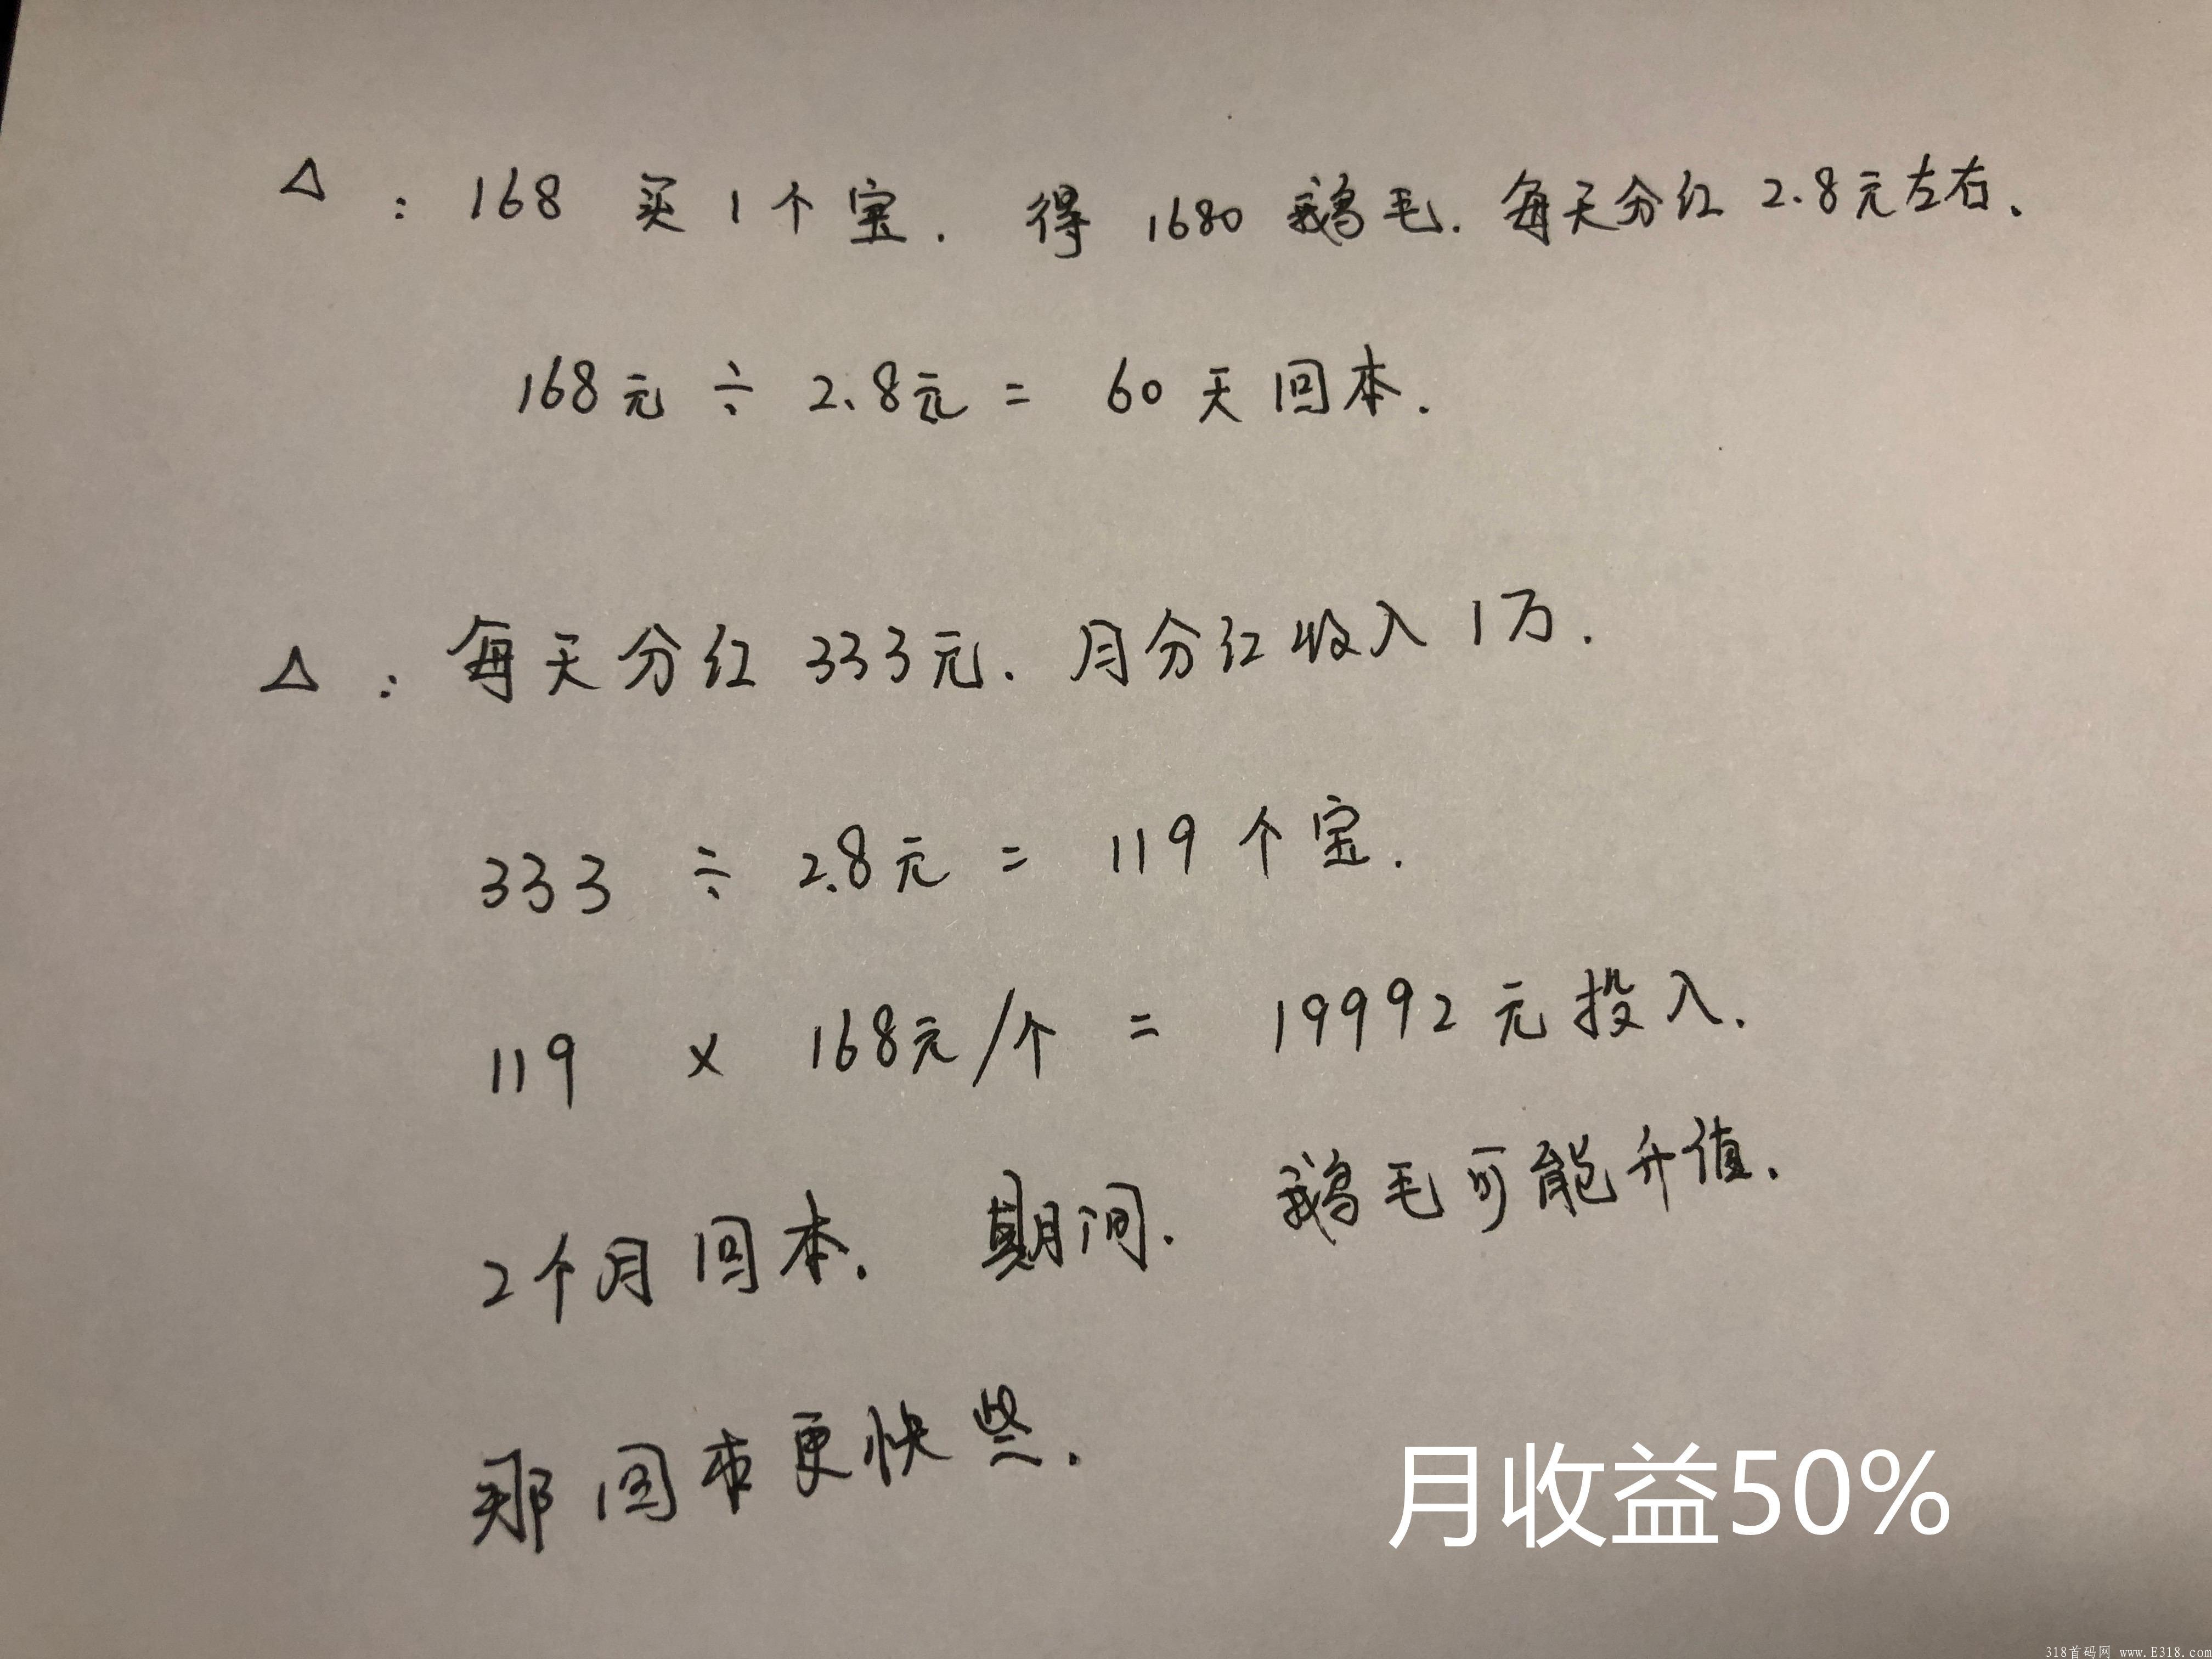 △：168 买 1 个宝. 得 1680 鹅毛. 每天分红 2.8元左右.
168元 ÷ 2.8元 = 60 天回本.
△：每天分红 333元. 月分红收入 1万.
333 ÷ 2.8元 = 119 个宝.
119 × 168元/个 = 19992 元投入.
2个月回本. 期间. 鹅毛可能升值.
那回本更快些.
月收益50%
318首码网 www.E318.com